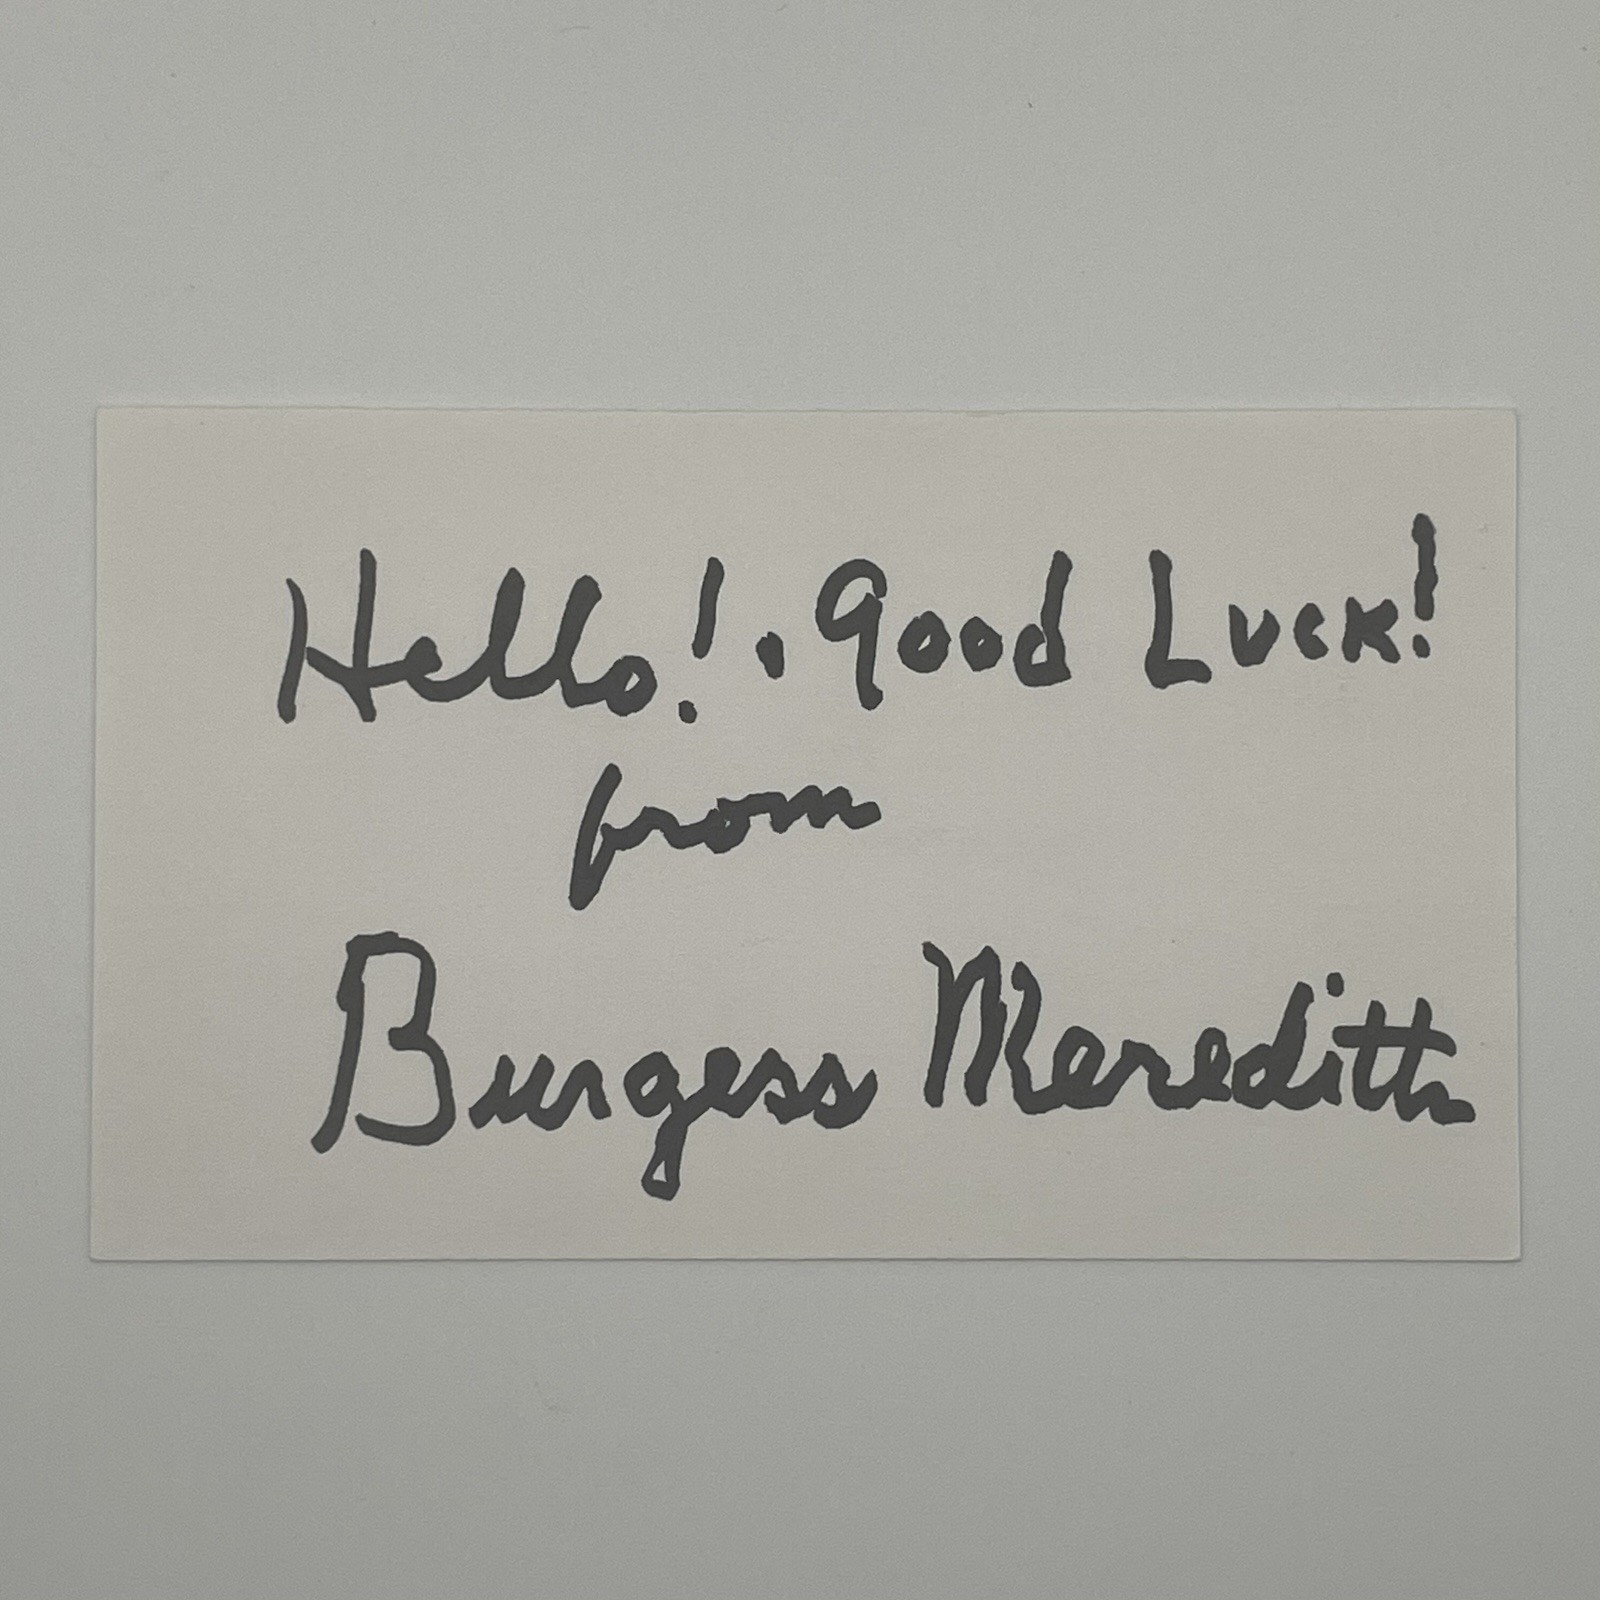 Hello! . Good Luck!
from
Burgess Meredith